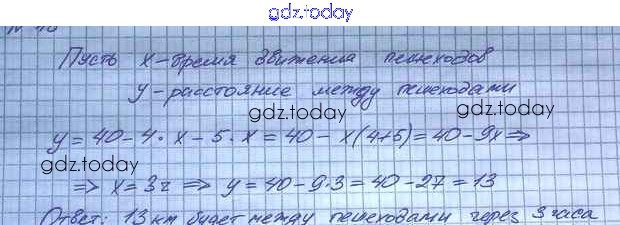 gdz.today
Пусть x - время движения пешеходов
y - расстояние между пешеходами
gdz.today
gdz.today
y = 40 - 4 · x - 5 · x = 40 - x(4+5) = 40 - 9x ⇒
gdz.today
⇒ x = 3ч ⇒ y = 40 - 9·3 = 40 - 27 = 13
Ответ: 13 км будет между пешеходами через 3 часа